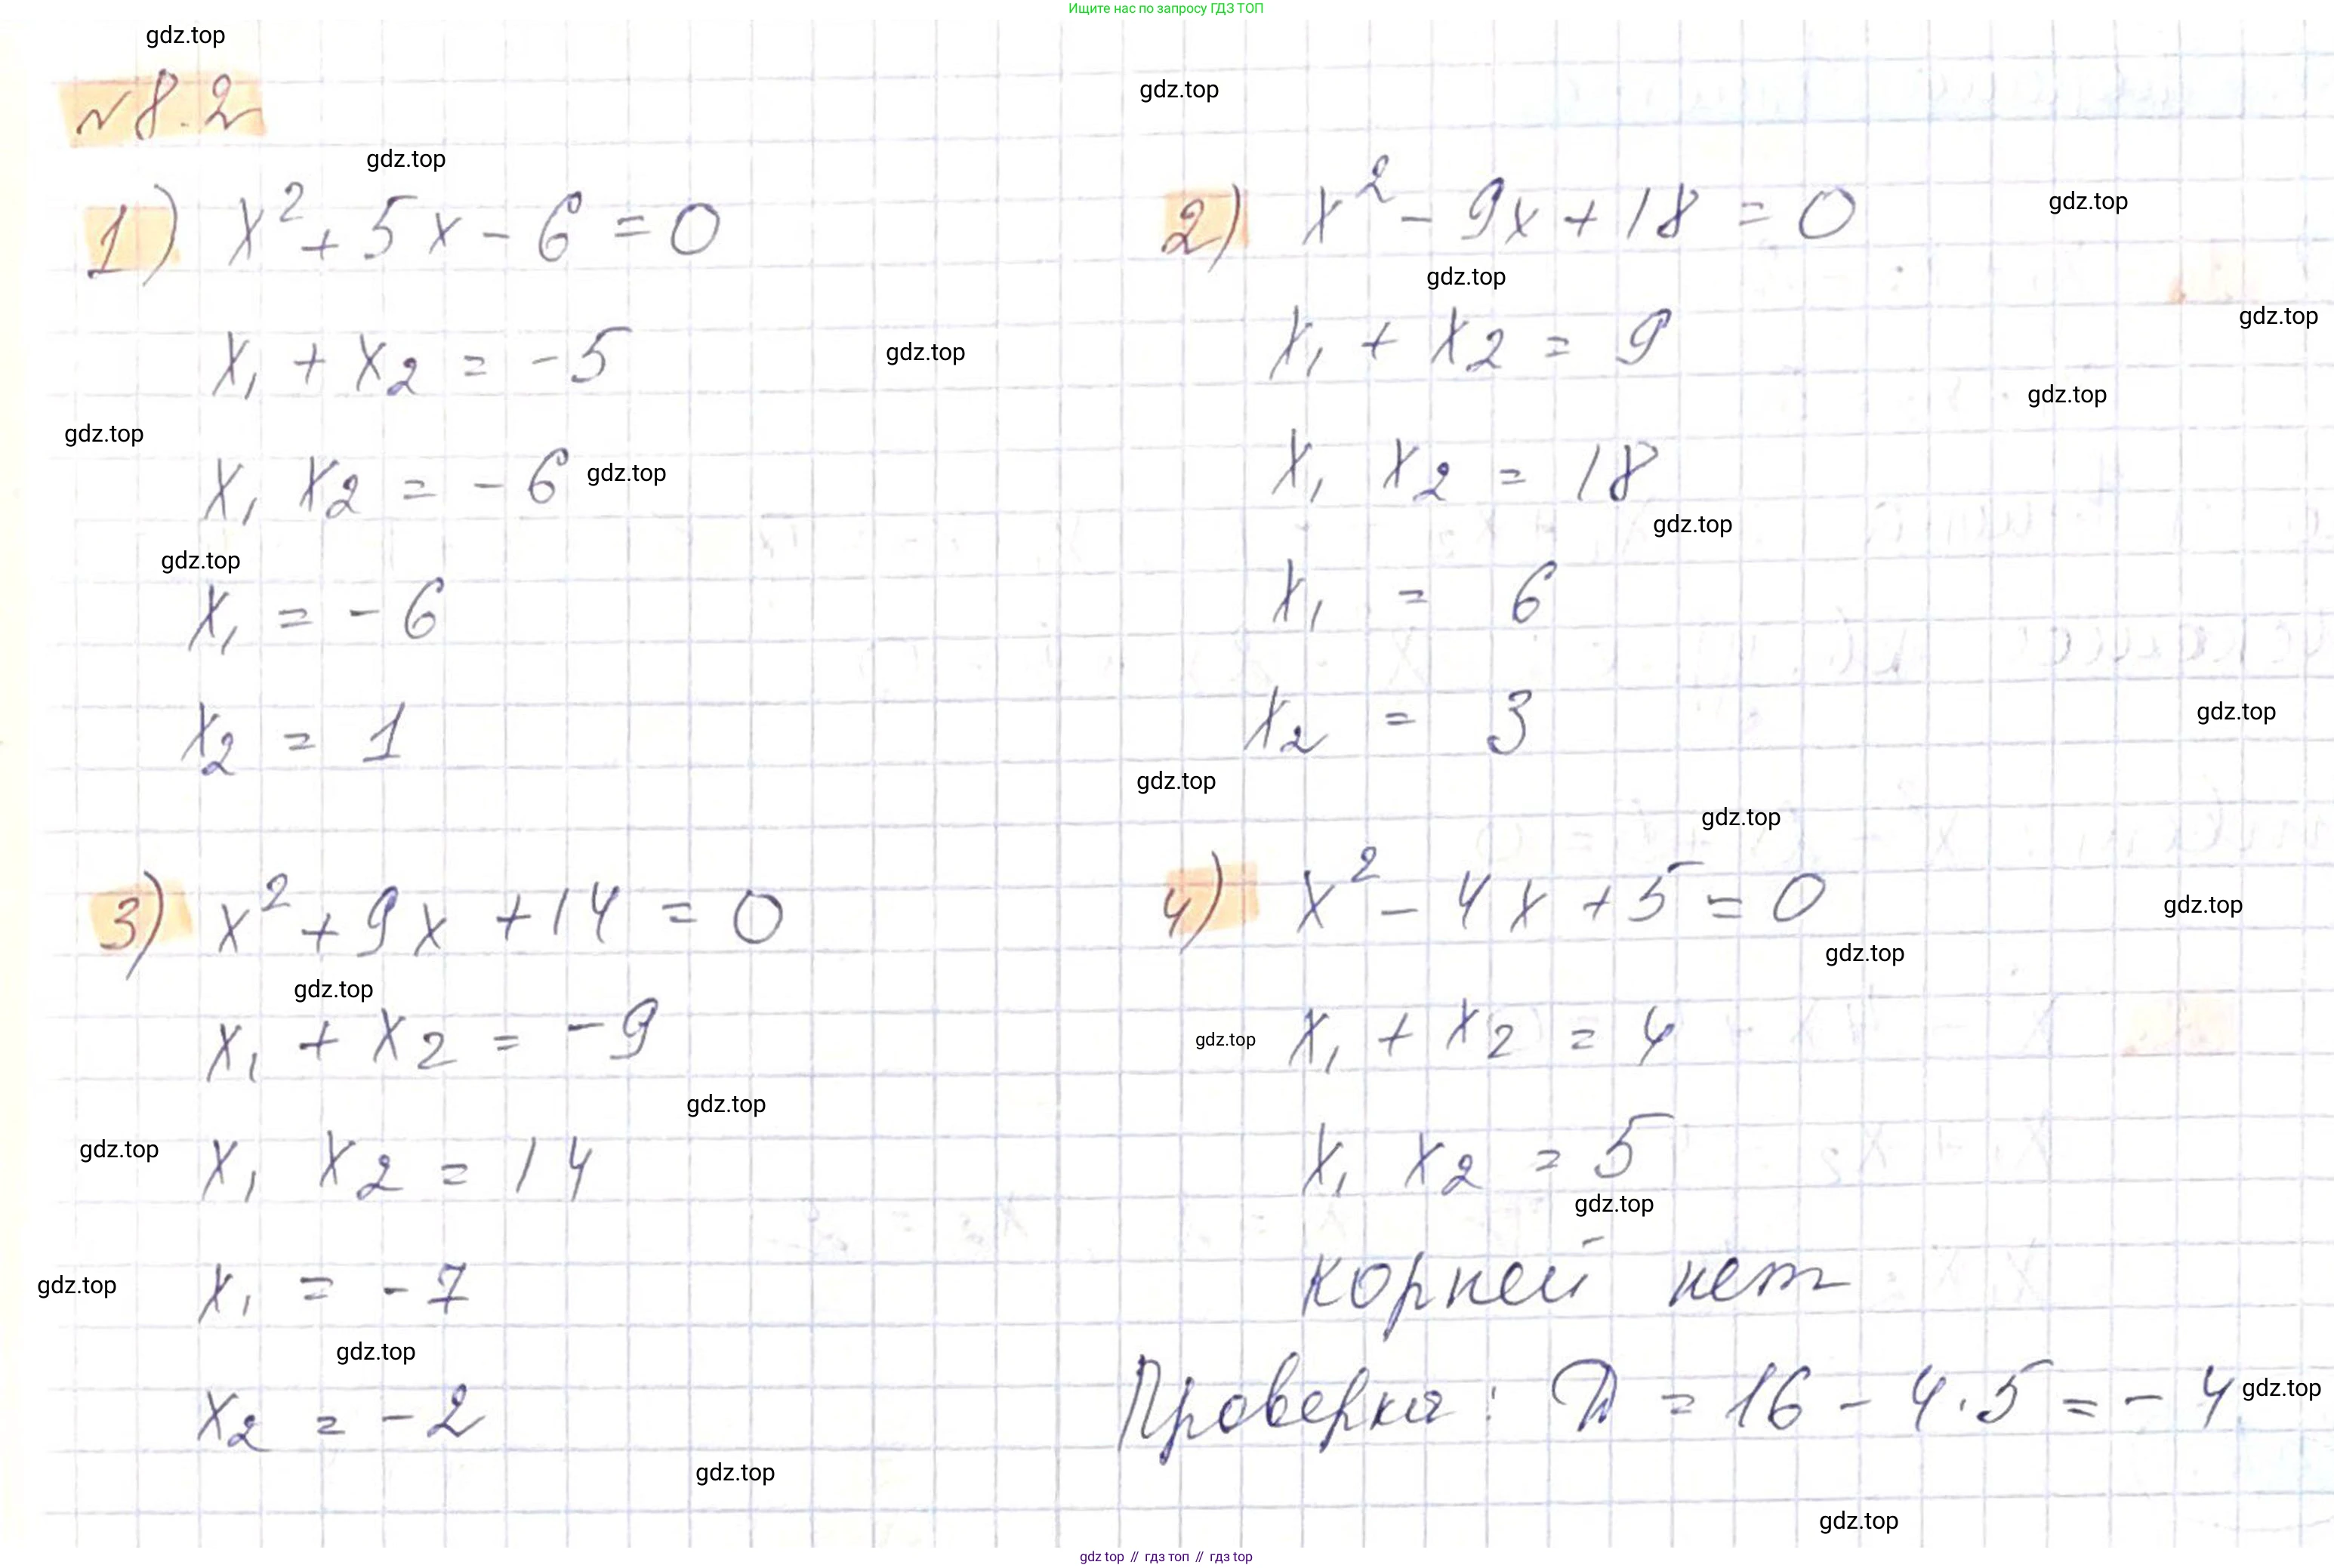 Ищите нас по запросу ГДЗ ТОП
gdz.top
№8.2
gdz.top
gdz.top
1) x² + 5x - 6 = 0
x₁ + x₂ = -5
gdz.top
gdz.top
x₁ x₂ = -6 gdz.top
gdz.top
x₁ = -6
x₂ = 1
2) x² - 9x + 18 = 0
gdz.top
gdz.top
gdz.top
x₁ + x₂ = 9
gdz.top
x₁ x₂ = 18
gdz.top
x₁ = 6
x₂ = 3
gdz.top
gdz.top
gdz.top
3) x² + 9x + 14 = 0
gdz.top
x₁ + x₂ = -9
gdz.top
gdz.top
x₁ x₂ = 14
gdz.top
x₁ = -7
gdz.top
x₂ = -2
gdz.top
4) x² - 4x + 5 = 0
gdz.top
gdz.top
gdz.top
x₁ + x₂ = 4
x₁ x₂ = 5
gdz.top
корней нет
Проверка: D = 16 - 4·5 = -4
gdz.top
gdz.top
gdz top // гдз топ // гдз top